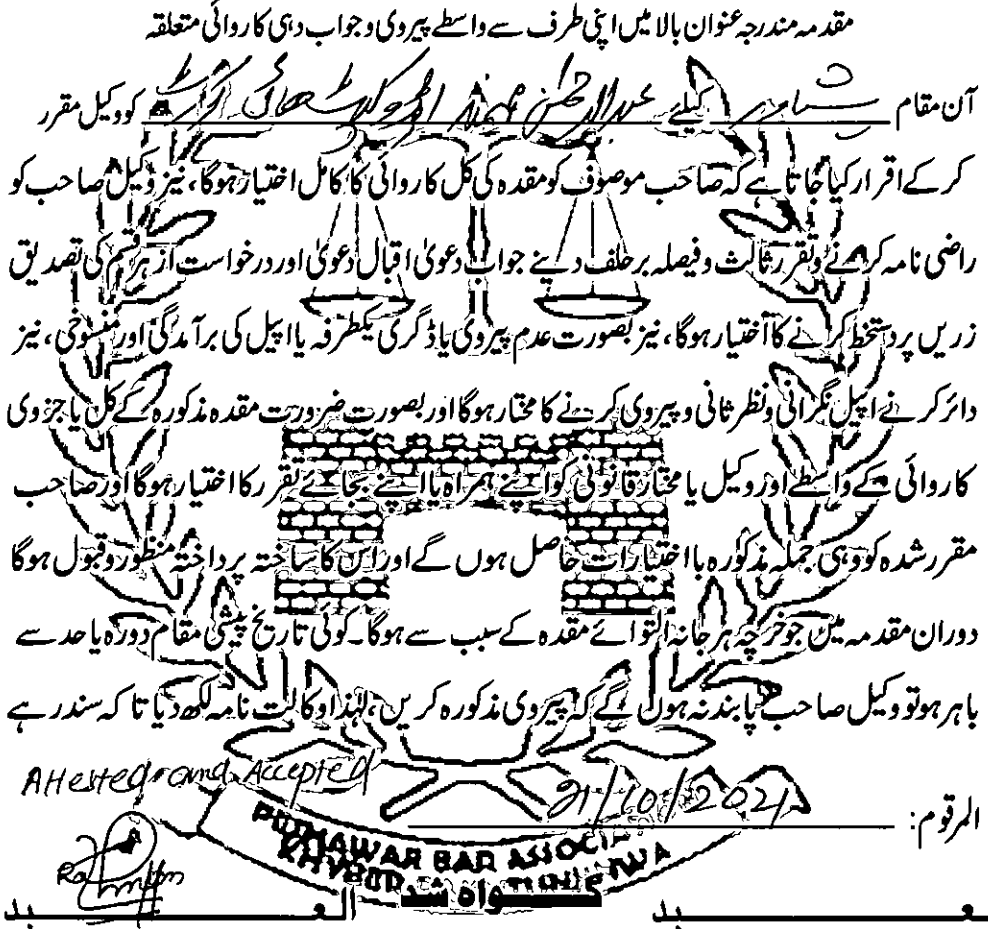 مقدمہ مندرجہ عنوان بالا میں اپنی طرف سے واسطے پیروی و جواب دہی کاروائی متعلقہ
آن مقام پشاور کیلئے عبدالرحمٰن مہمند ایڈوکیٹ ہائی کورٹ کو وکیل مقرر
کر کے اقرار کیا جاتا ہے کہ صاحب موصوف کو مقدہ کی کل کاروائی کا کامل اختیار ہوگا، نیز وکیل صاحب کو
راضی نامہ کرنے و تقرر ثالث و فیصلہ برحلف دینے جواب دعویٰ اقبال دعویٰ اور درخواست از ہر قسم کی تصدیق
زریں پر دستخط کرانے کا اختیار ہوگا، نیز بصورت عدم پیروی یا ڈگری یکطرفہ یا اپیل کی برآمدگی اور منسوخی، نیز
دائر کرنے اپیل نگرانی و نظر ثانی و پیروی کرنے کا مختار ہوگا اور بصورت ضرورت مقدہ مذکورہ کے کل یا جزوی
کاروائی کے واسطے اور وکیل یا مختار قانونی کو اپنے ہمراہ یا اپنے بجائے تقرر کا اختیار ہوگا اور صاحب
مقرر شدہ کو وہی جملہ مذکورہ بااختیارات حاصل ہوں گے اور اس کا ساختہ پرداختہ منظور و قبول ہوگا
دوران مقدمہ میں جو خرچہ ہرجانہ التوائے مقدہ کے سبب سے ہوگا۔ کوئی تاریخ پیشی مقام دورہ یا حد سے
باہر ہو تو وکیل صاحب پابند نہ ہوں گے کہ پیروی مذکورہ کریں، لہٰذا وکالت نامہ لکھ دیا تا کہ سند رہے
Attested and Accepted
المرقوم: 21/10/2021
PESHAWAR BAR ASSOCIA
KHYBER PAKHTUNKHWA
گواہ شد
العبد